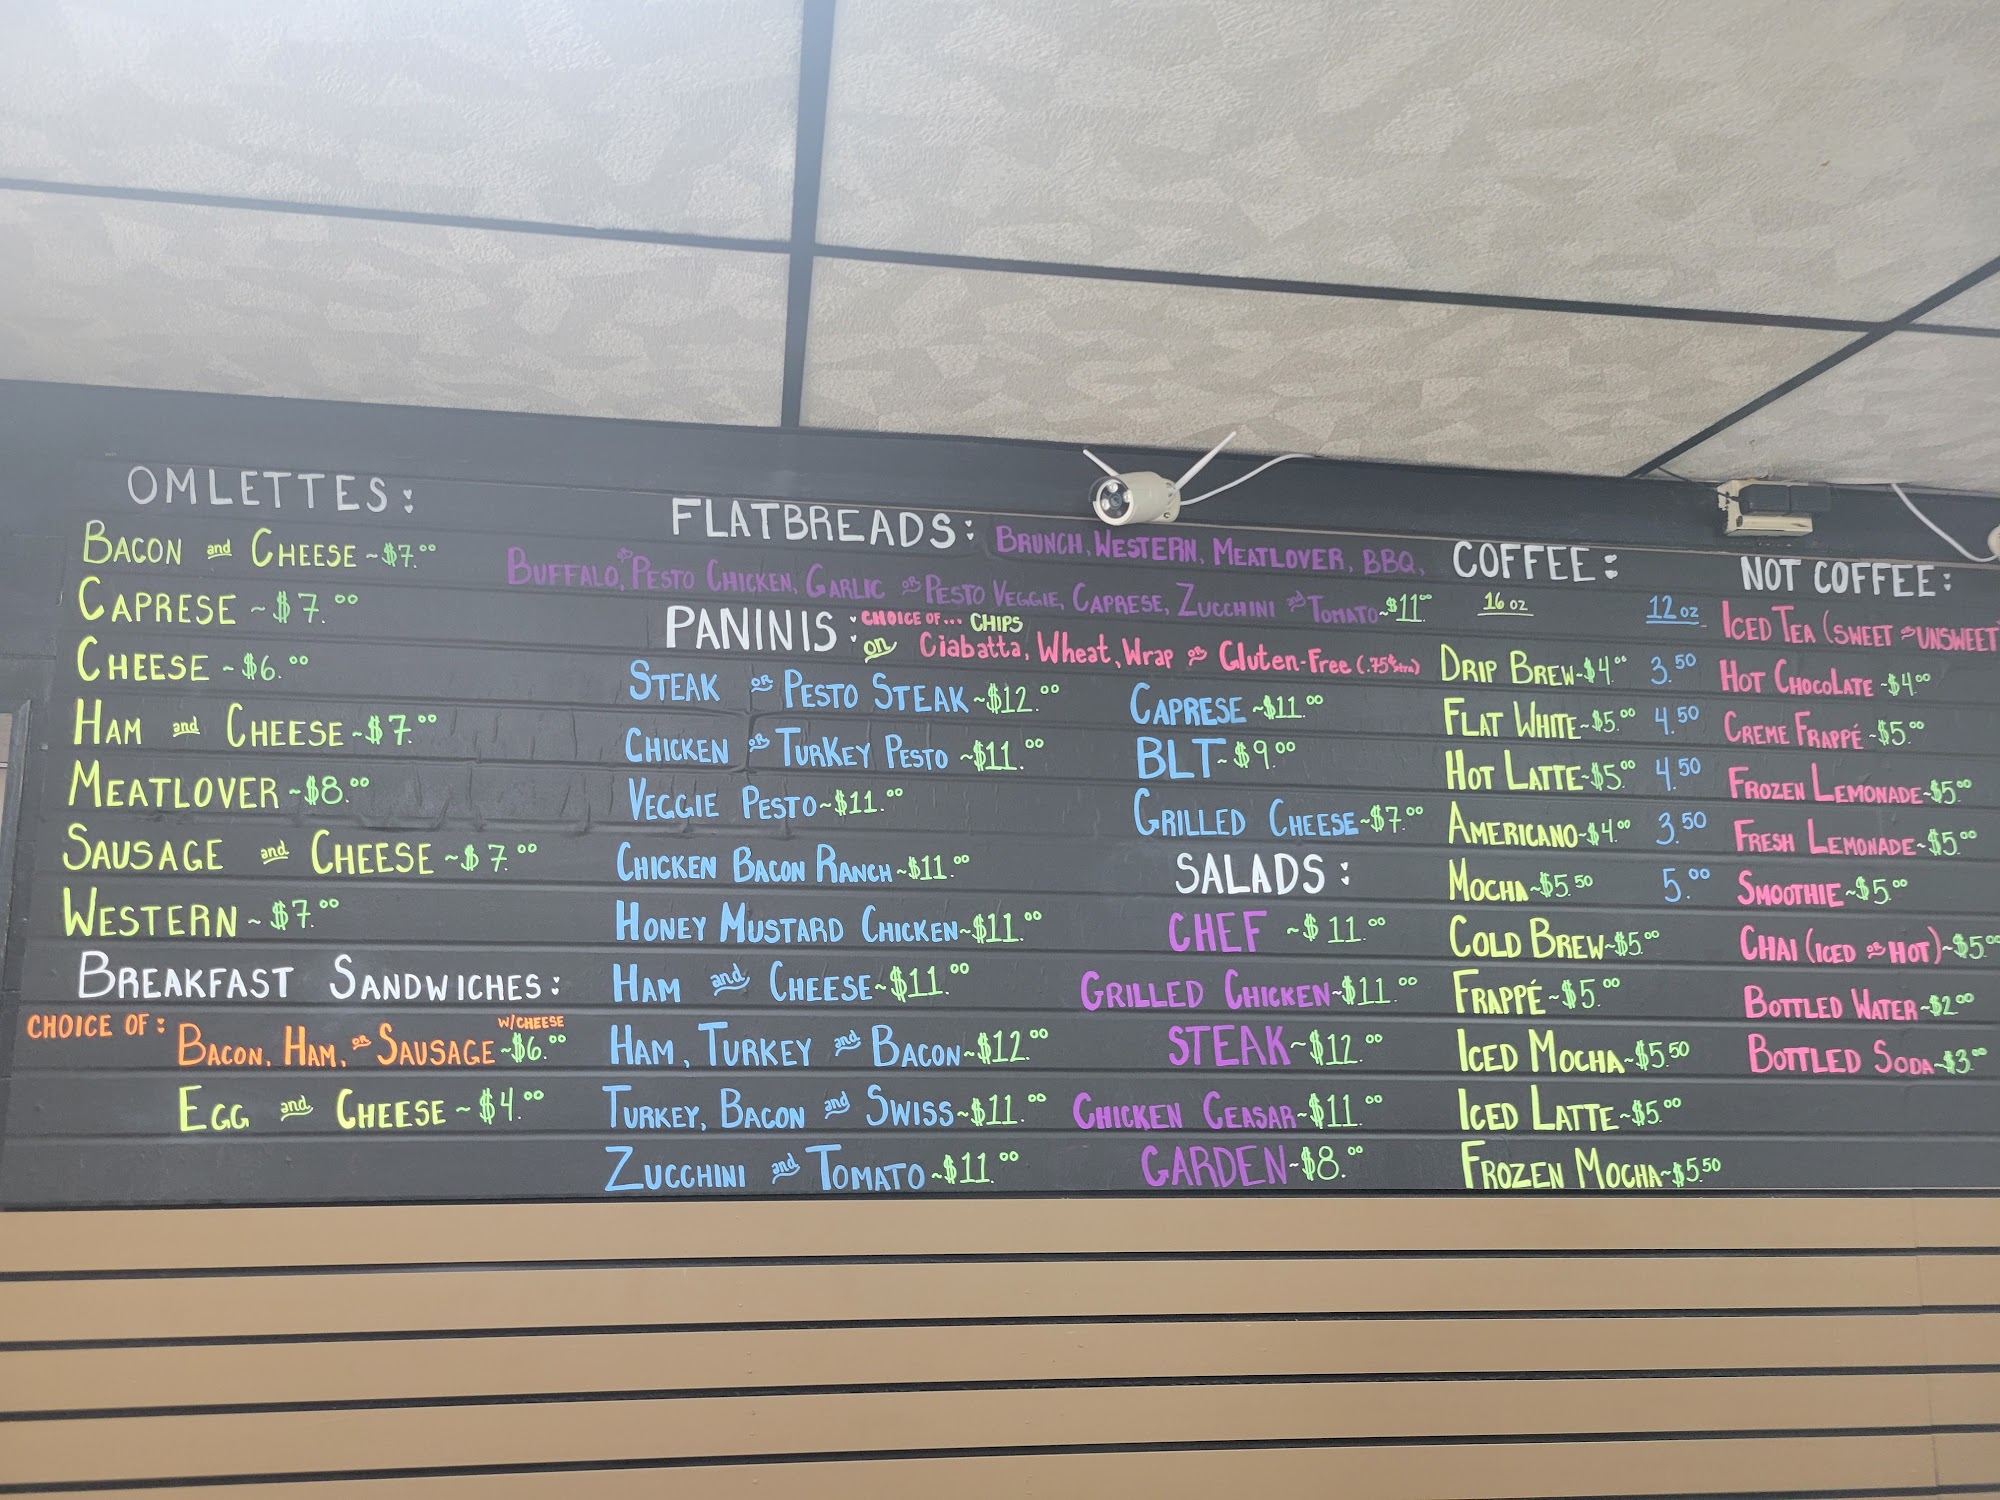 OMLETTES:
BACON and CHEESE ~ $7.00
CAPRESE ~ $7.00
CHEESE ~ $6.00
HAM and CHEESE ~ $7.00
MEATLOVER ~ $8.00
SAUSAGE and CHEESE ~ $7.00
WESTERN ~ $7.00
BREAKFAST SANDWICHES:
CHOICE OF: BACON, HAM, OR SAUSAGE W/CHEESE ~ $6.00
EGG and CHEESE ~ $4.00
FLATBREADS: BRUNCH, WESTERN, MEATLOVER, BBQ,
BUFFALO, OR PESTO CHICKEN, GARLIC OR PESTO VEGGIE, CAPRESE, ZUCCHINI and TOMATO ~ $11.00
PANINIS: CHOICE OF... CHIPS
on Ciabatta, Wheat, Wrap OR Gluten-Free (.75¢ extra)
STEAK OR PESTO STEAK ~ $12.00
CHICKEN OR TURKEY PESTO ~ $11.00
VEGGIE PESTO ~ $11.00
CHICKEN BACON RANCH ~ $11.00
HONEY MUSTARD CHICKEN ~ $11.00
HAM and CHEESE ~ $11.00
HAM, TURKEY and BACON ~ $12.00
TURKEY, BACON and SWISS ~ $11.00
ZUCCHINI and TOMATO ~ $11.00
CAPRESE ~ $11.00
BLT ~ $9.00
GRILLED CHEESE ~ $7.00
SALADS:
CHEF ~ $11.00
GRILLED CHICKEN ~ $11.00
STEAK ~ $12.00
CHICKEN CEASAR ~ $11.00
GARDEN ~ $8.00
COFFEE:
16 oz 12 oz
DRIP BREW ~ $4.00 3.50
FLAT WHITE ~ $5.00 4.50
HOT LATTE ~ $5.00 4.50
AMERICANO ~ $4.00 3.50
MOCHA ~ $5.50 5.00
COLD BREW ~ $5.00
FRAPPÉ ~ $5.00
ICED MOCHA ~ $5.50
ICED LATTE ~ $5.00
FROZEN MOCHA ~ $5.50
NOT COFFEE:
ICED TEA (SWEET OR UNSWEET)
HOT CHOCOLATE ~ $4.00
CREME FRAPPÉ ~ $5.00
FROZEN LEMONADE ~ $5.00
FRESH LEMONADE ~ $5.00
SMOOTHIE ~ $5.00
CHAI (ICED OR HOT) ~ $5.00
BOTTLED WATER ~ $2.00
BOTTLED SODA ~ $3.00